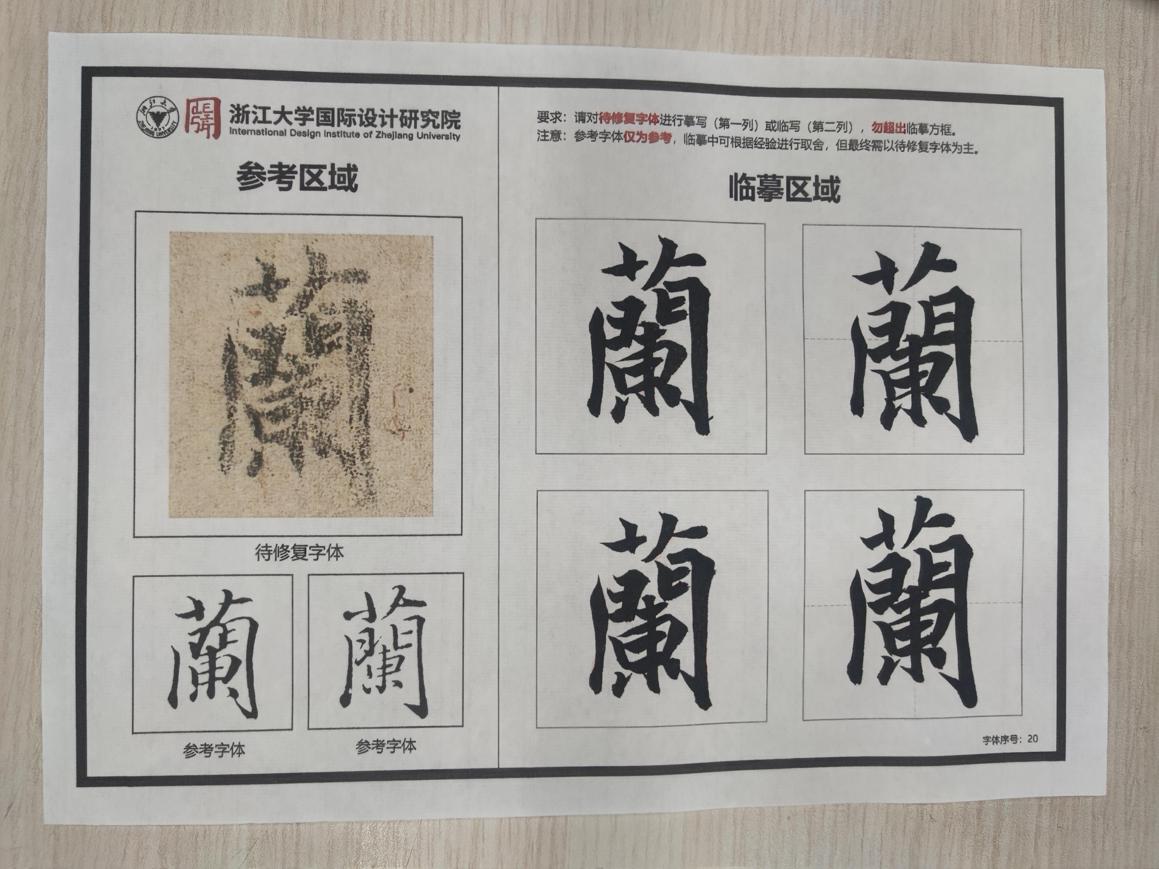 浙江大学国际设计研究院
International Design Institute of Zhejiang University
参考区域
蘭
待修复字体
蘭 蘭
参考字体 参考字体
要求：请对待修复字体进行摹写（第一列）或临写（第二列），勿超出临摹方框。
注意：参考字体仅为参考，临摹中可根据经验进行取舍，但最终需以待修复字体为主。
临摹区域
蘭 蘭
蘭 蘭
字体序号：20